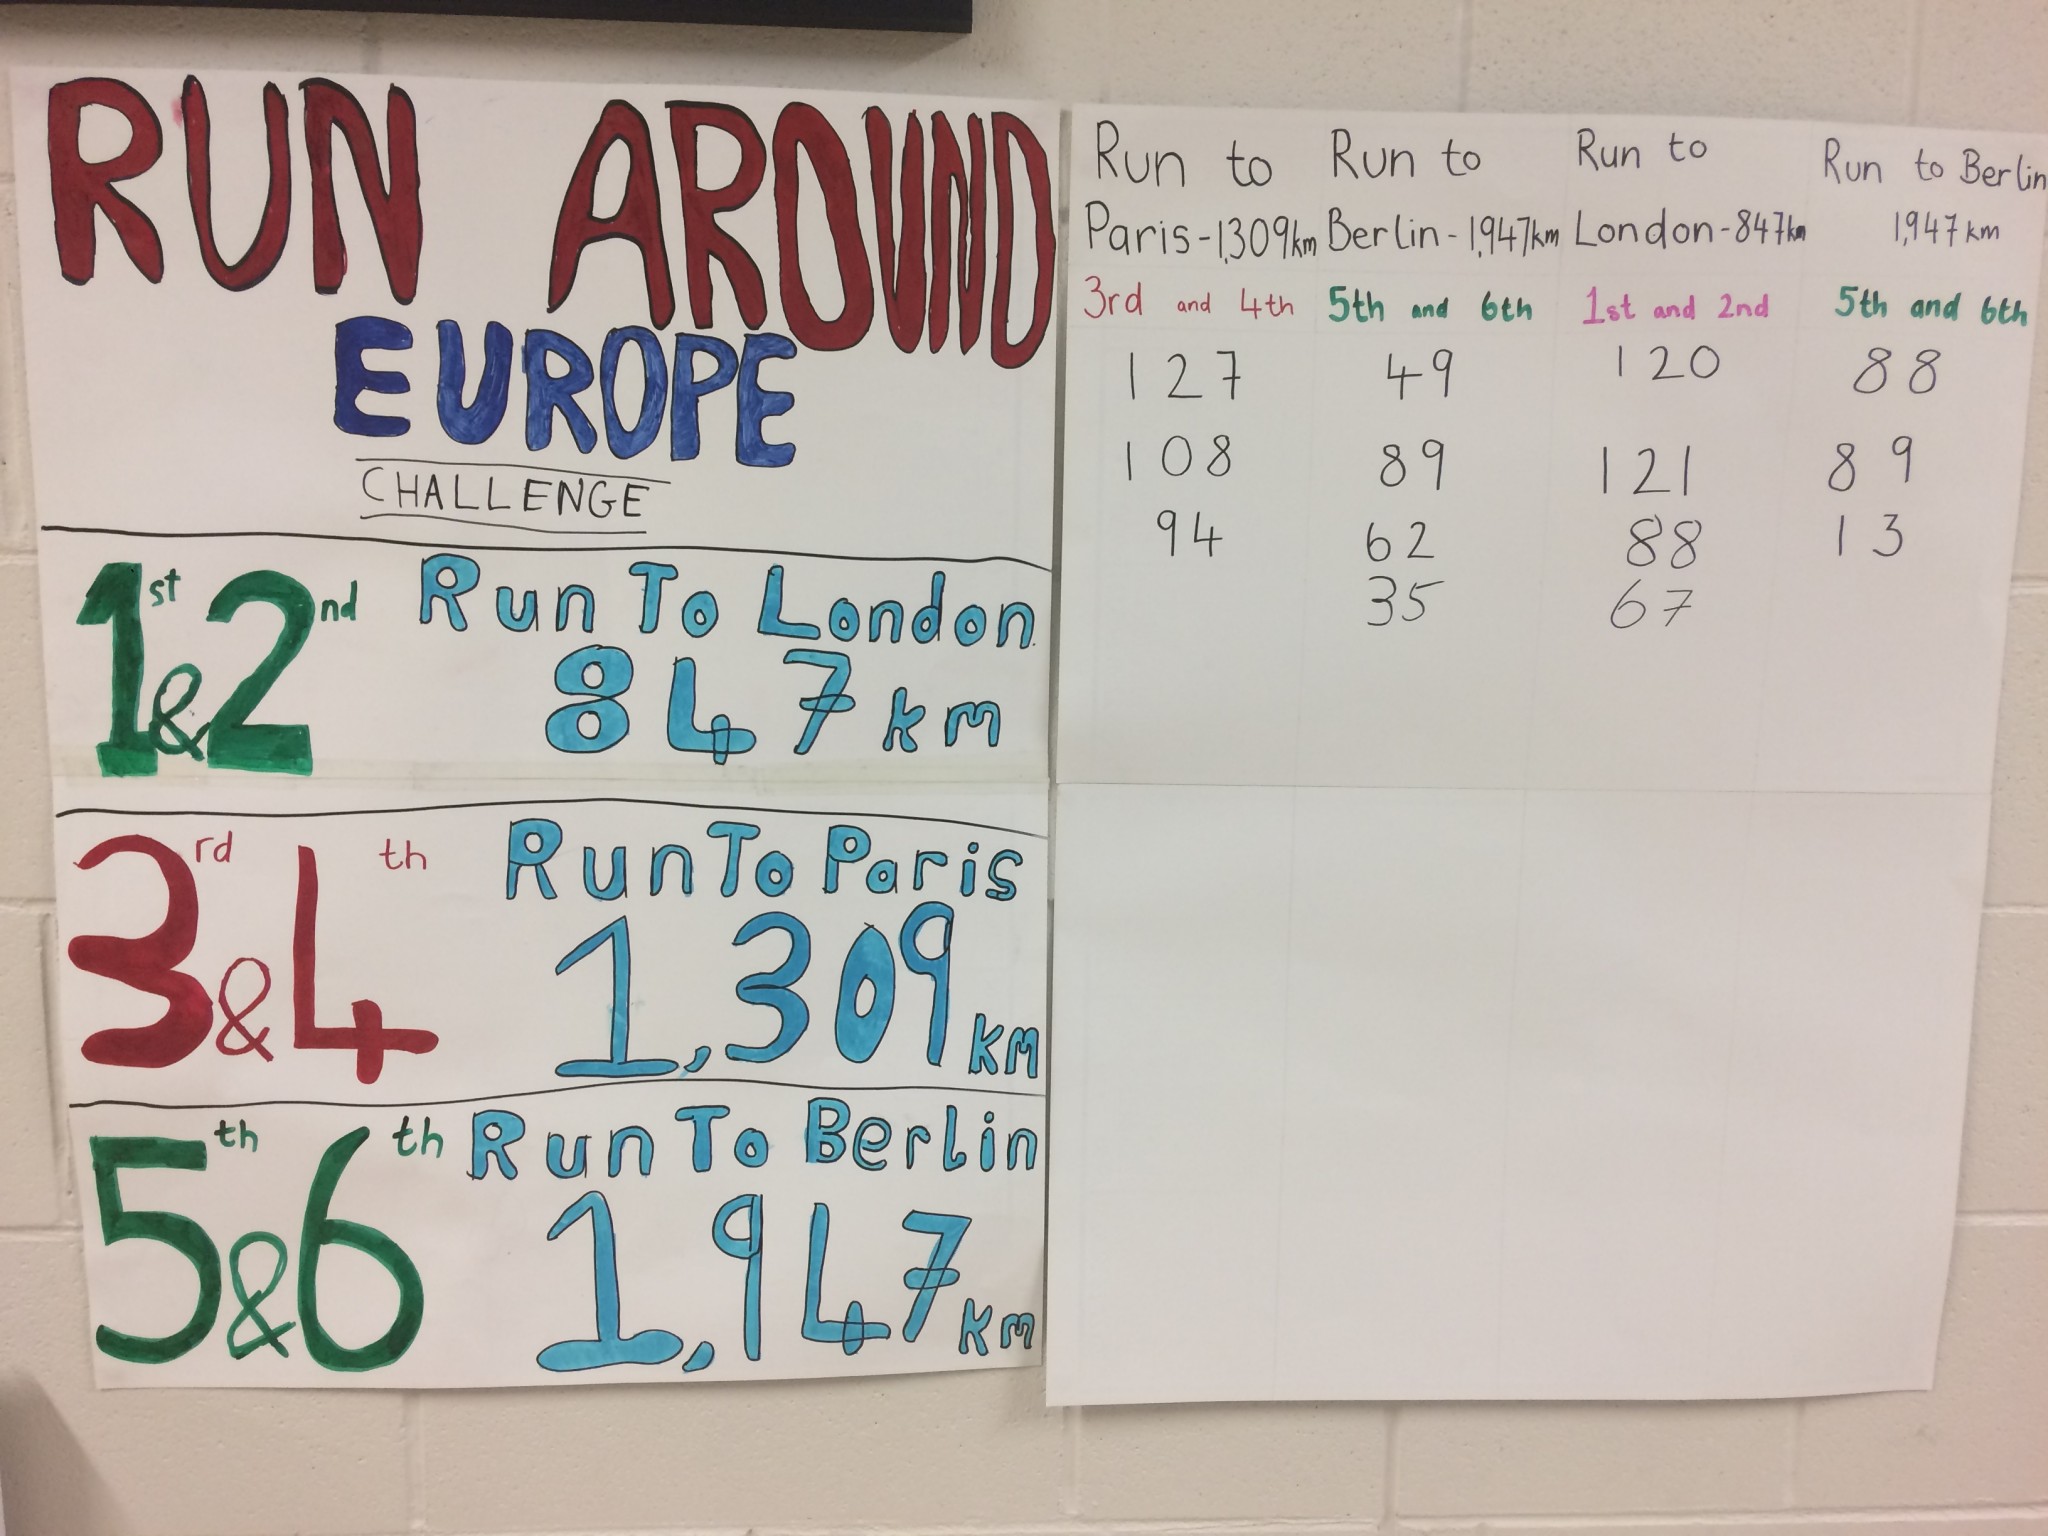 RUN AROUND
EUROPE
CHALLENGE
1st & 2nd Run To London
847 km
3rd & 4th Run To Paris
1,309 km
5th & 6th Run To Berlin
1,947 km
Run to
Paris - 1,309km
3rd and 4th
127
108
94
Run to
Berlin - 1,947km
5th and 6th
49
89
62
35
Run to
London - 847km
1st and 2nd
120
121
88
67
Run to Berlin
1,947 km
5th and 6th
88
89
13